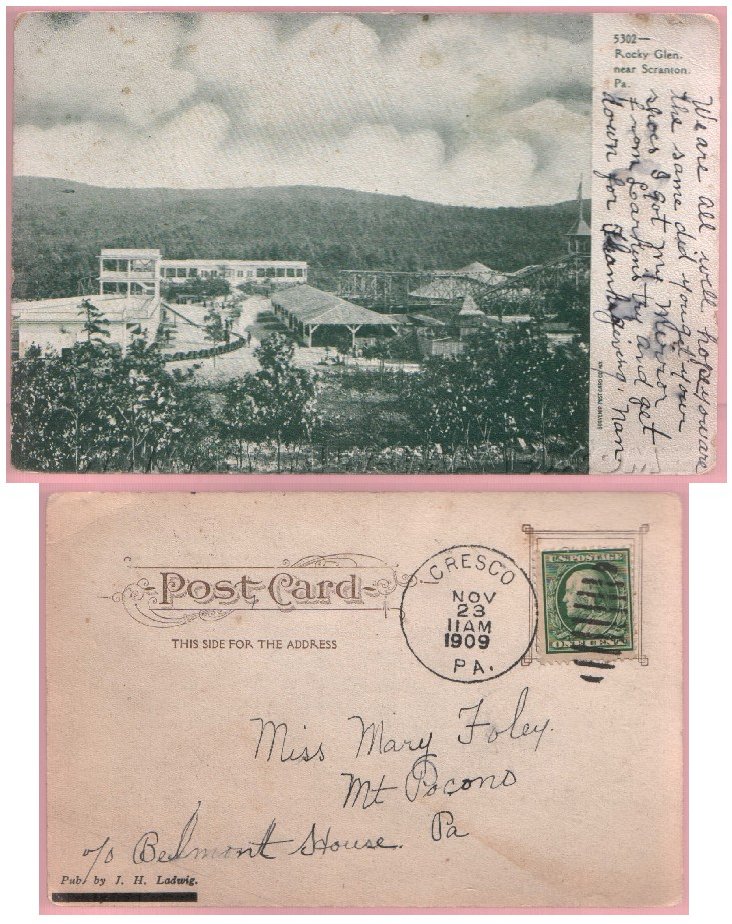 5302—
Rocky Glen.
near Scranton.
Pa.
We are all well hope you are
the same did you git your
shoes I got my Mirror
from Learkens try and get
down for Thanksgiving, Nan
Post Card
THIS SIDE FOR THE ADDRESS
CRESCO
NOV
23
11AM
1909
PA.
U.S. POSTAGE
ONE CENT
Miss Mary Foley.
Mt Pocono
Pa
c/o Belmont House.
Pub. by J. H. Ladwig.